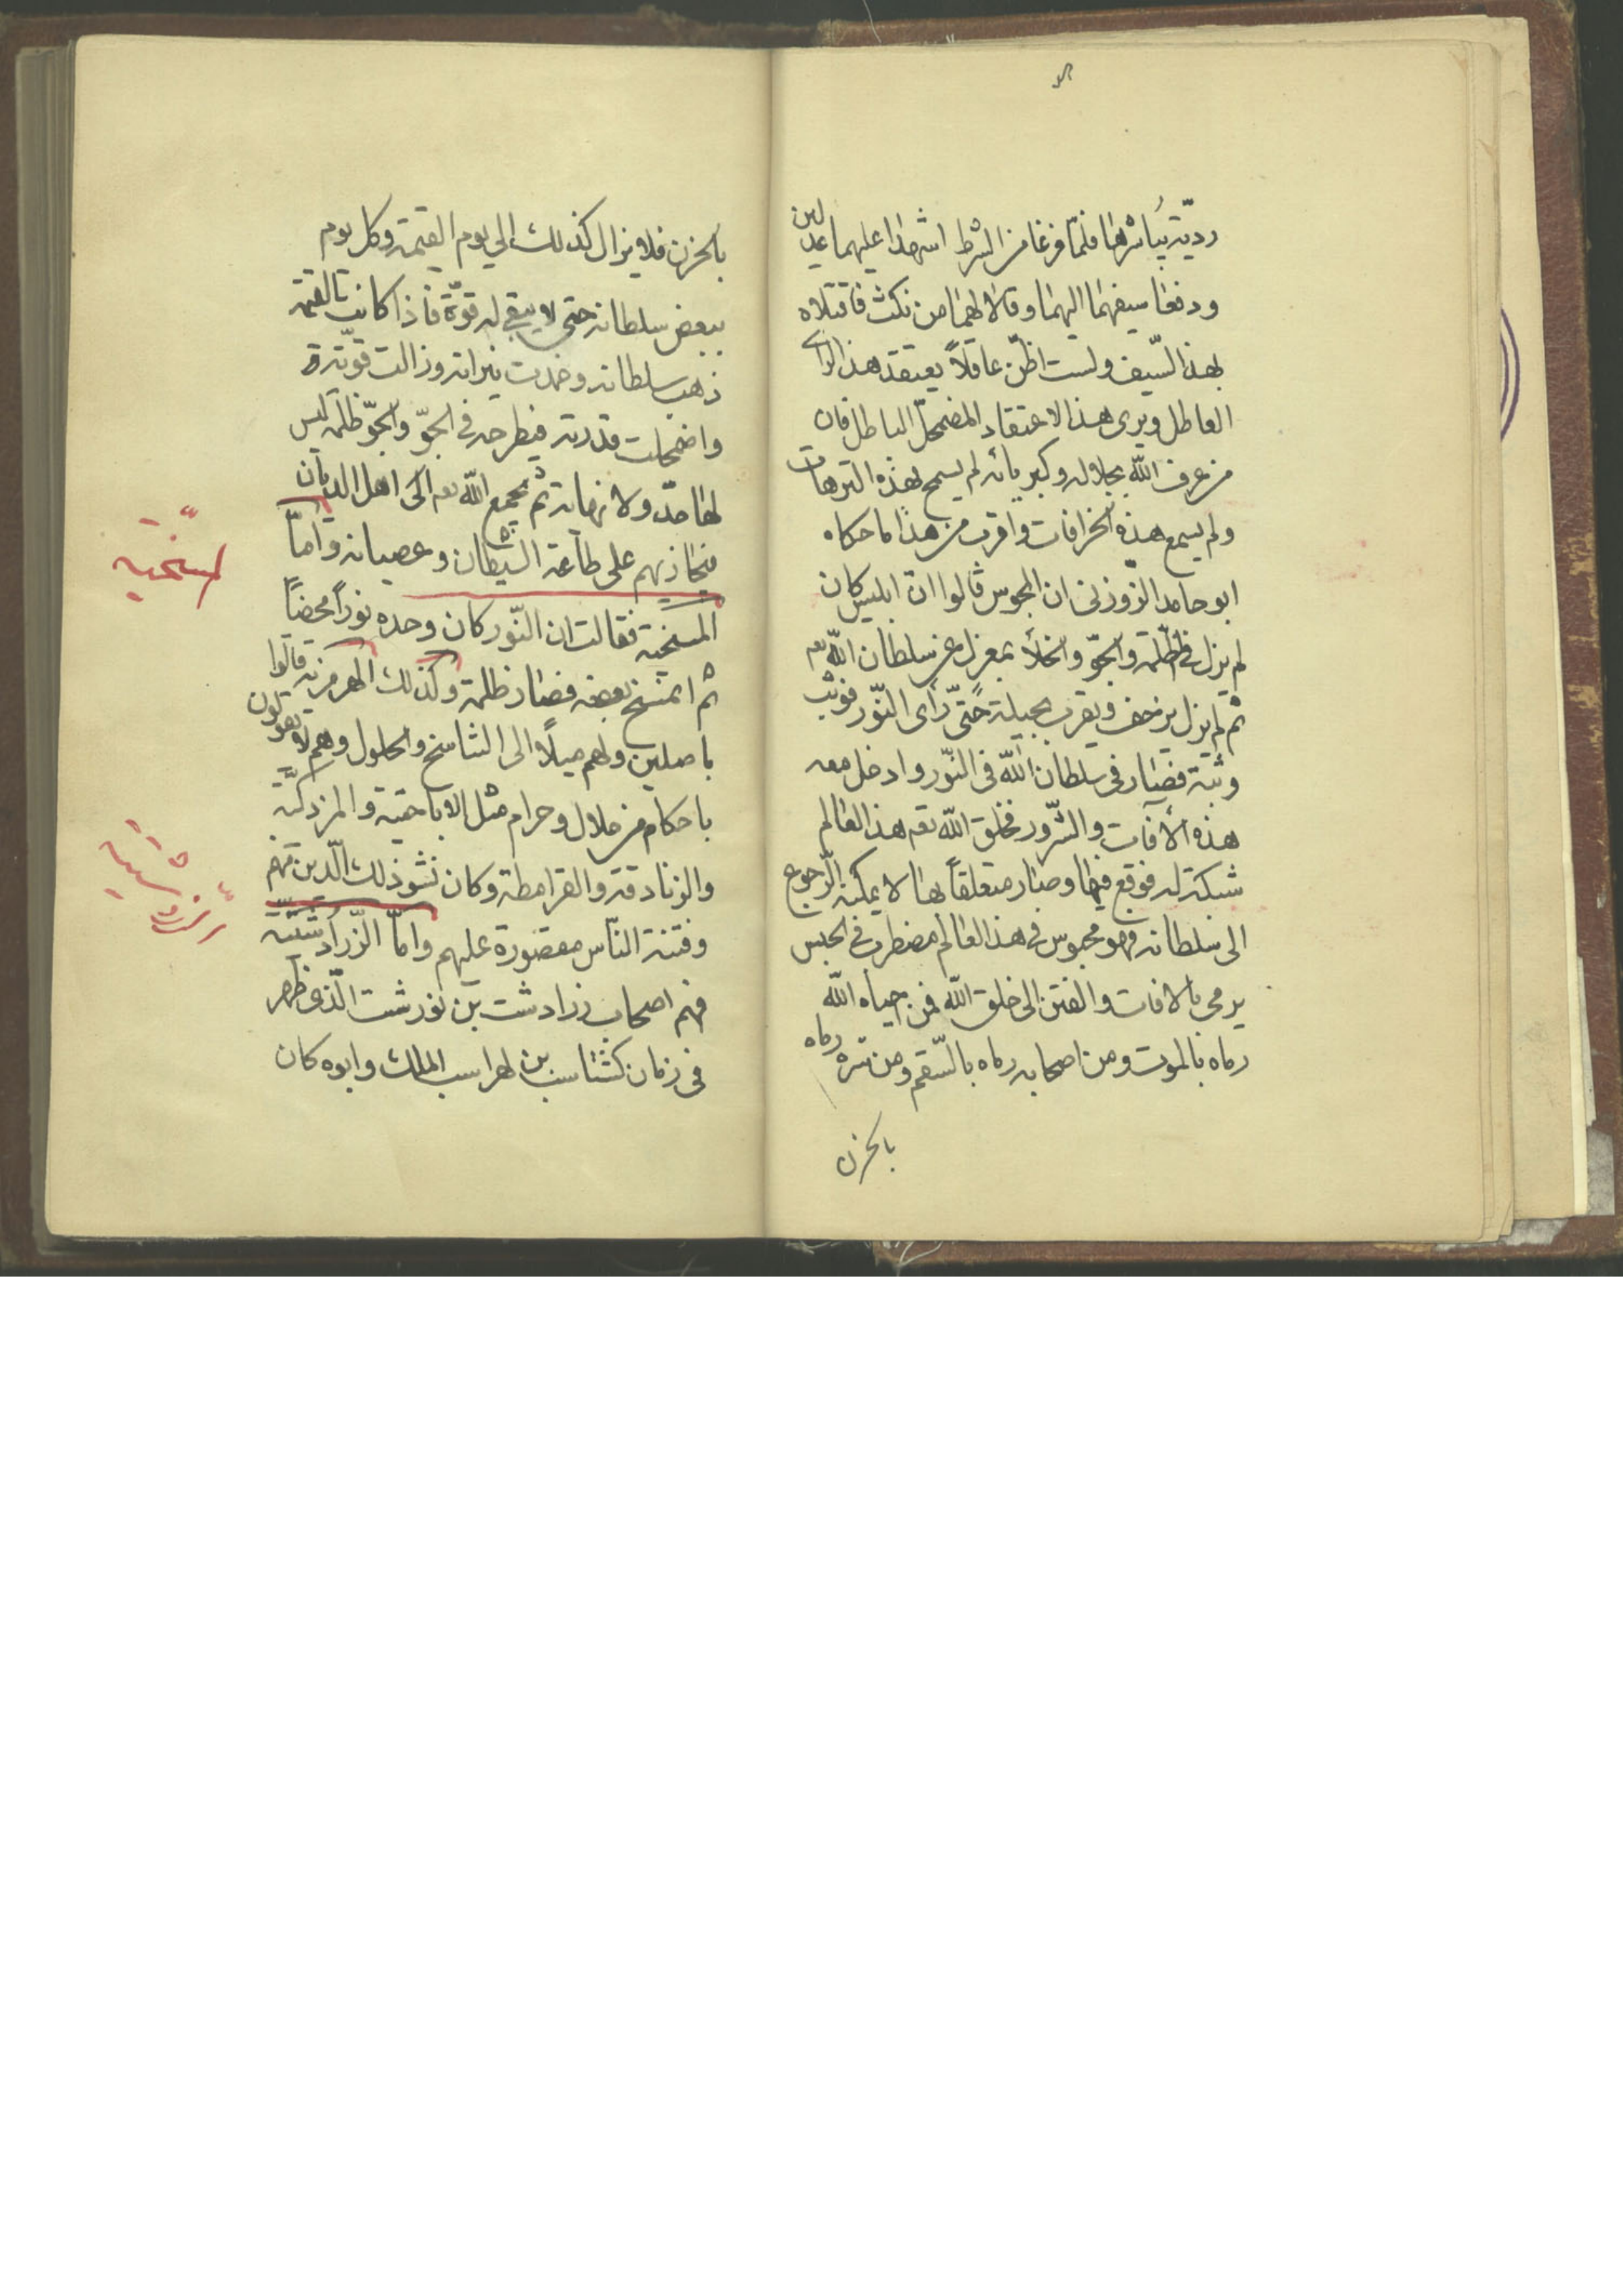 ردية يباشرها فلمّا فرغا من الشرط اشهدا عليهما عدلين
ودفعا سيفهما اليهما وقالا لهما من نكث فاقتلاه
بهذ السّيف ولست اظنّ عاقلاً يعتقد هذ الراى
العاطل ويرى هذ الاعتقاد المضمحلّ الباطل فان
من عرف اللّه بجلاله وكبريائه لم يسمح بهذه الترهات
ولم يسمع هذه الخرافات واقرب من هذا ما حكاه
ابو حامد الزّوزنى ان المجوس قالوا انّ ابليس كان
لم يزل فى الظّلمة والجوّ والخلأ بمعزل عن سلطان اللّه تعم
ثم لم يزل يزحف ويقرب بحيلة حتّى رأى النّور فوثب
وثبة فصار فى سلطان اللّه فى النّور وادخل معه
هذه الأفات والشّرور فخلق اللّه تعم هذ العالم
شبكة له فوقع فيها وصار متعلقاً بها لا يمكنه الرّجوع
الى سلطانه فهو محبوس فى هذ العالم مضطرب فى الحبس
يرمى بالافات والفتن الى خلق اللّه فمن احياه اللّه
رماه بالموت ومن اصحابه رماه بالسّقم ومن سّره رماه
بالحزن
بالحزن فلا يزال كذلك الى يوم القيمة وكل يوم
ببعض سلطانه حتى لا يبقى له قوّة فاذا كانت القيمة
ذهب سلطانه وخمدت نيرانه وزالت قوّته
واضمحلت قدرته فيطرحه فى الجوّ والجوّ ظلمة ليس
لها حدّ ولا نهاية ثم يجمع اللّه تعم اهل الاديان
فيجازيهم على طاعة الشيطان وعصيانه وامّا
المسخية فقالت ان النّور كان وحده نوراً محضاً
ثم انمسخ بعضه فصار ظلمة وكذلك الهرمزية قالوا
باصلين ولهم ميلاً الى التناسخ والحلول وهم لا يقولون
باحكام من حلال وحرام مثل الاباحية والمزدكيّة
والزنادقة والقرامطة وكان تشوذلك الّدين منهم
وفتنة النّاس مقصورة عليهم وامّا الزّرادشتيّه
فهم اصحاب زرادشت بن نورشت الّذى ظهر
فى زمان كشتاسب بن لهراسب الملك وابوه كان